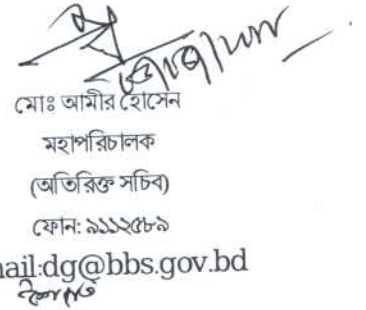 মোঃ আমীর হোসেন
মহাপরিচালক
(অতিরিক্ত সচিব)
ফোন: ৯১১২৫৮৯
mail:dg@bbs.gov.bd